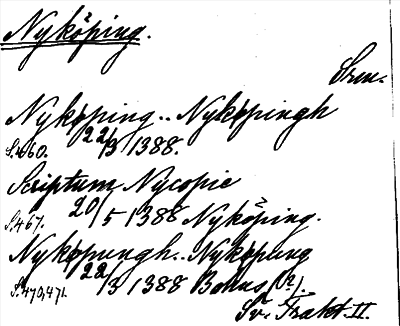 Nyköping.
Srm.
Nykøping.. Nykøpingh
S.460. 22/3 1388.
Scriptum Nycopie
S.467. 20/5 1388 Nyköping.
Nykøpungh.. Nykøpung
S.470,471. 22/3 1388 Bohus (?).
Sv. Trakt. II.